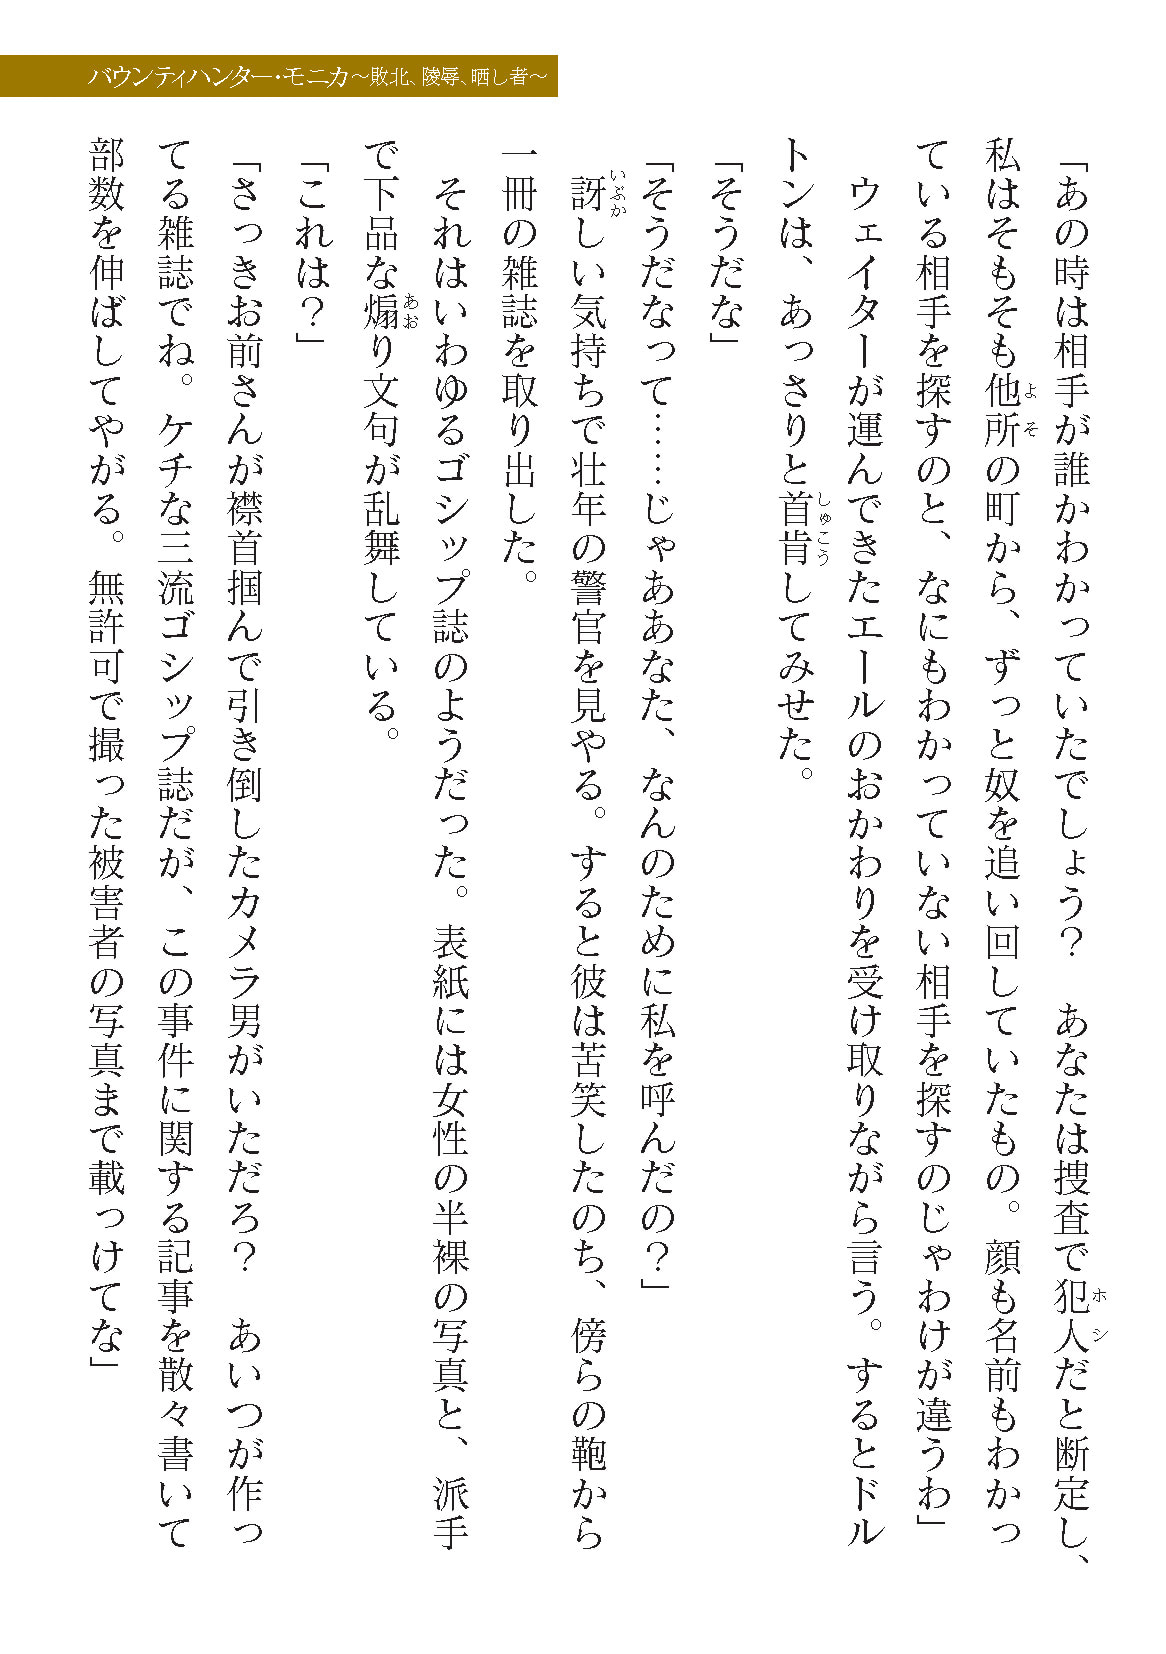 バウンティハンター・モニカ～敗北、陵辱、晒し者～
「あの時は相手が誰かわかっていたでしょう？　あなたは捜査で犯人だと断定し、
私はそもそも他所の町から、ずっと奴を追い回していたもの。顔も名前もわかっ
ている相手を探すのと、なにもわかっていない相手を探すのじゃわけが違うわ」
　ウェイターが運んできたエールのおかわりを受け取りながら言う。するとドル
トンは、あっさりと首肯してみせた。
「そうだな」
「そうだなって……じゃああなた、なんのために私を呼んだの？」
　訝しい気持ちで壮年の警官を見やる。すると彼は苦笑したのち、傍らの鞄から
一冊の雑誌を取り出した。
　それはいわゆるゴシップ誌のようだった。表紙には女性の半裸の写真と、派手
で下品な煽り文句が乱舞している。
「これは？」
「さっきお前さんが襟首掴んで引き倒したカメラ男がいただろ？　あいつが作っ
てる雑誌でね。ケチな三流ゴシップ誌だが、この事件に関する記事を散々書いて
部数を伸ばしてやがる。無許可で撮った被害者の写真まで載っけてな」